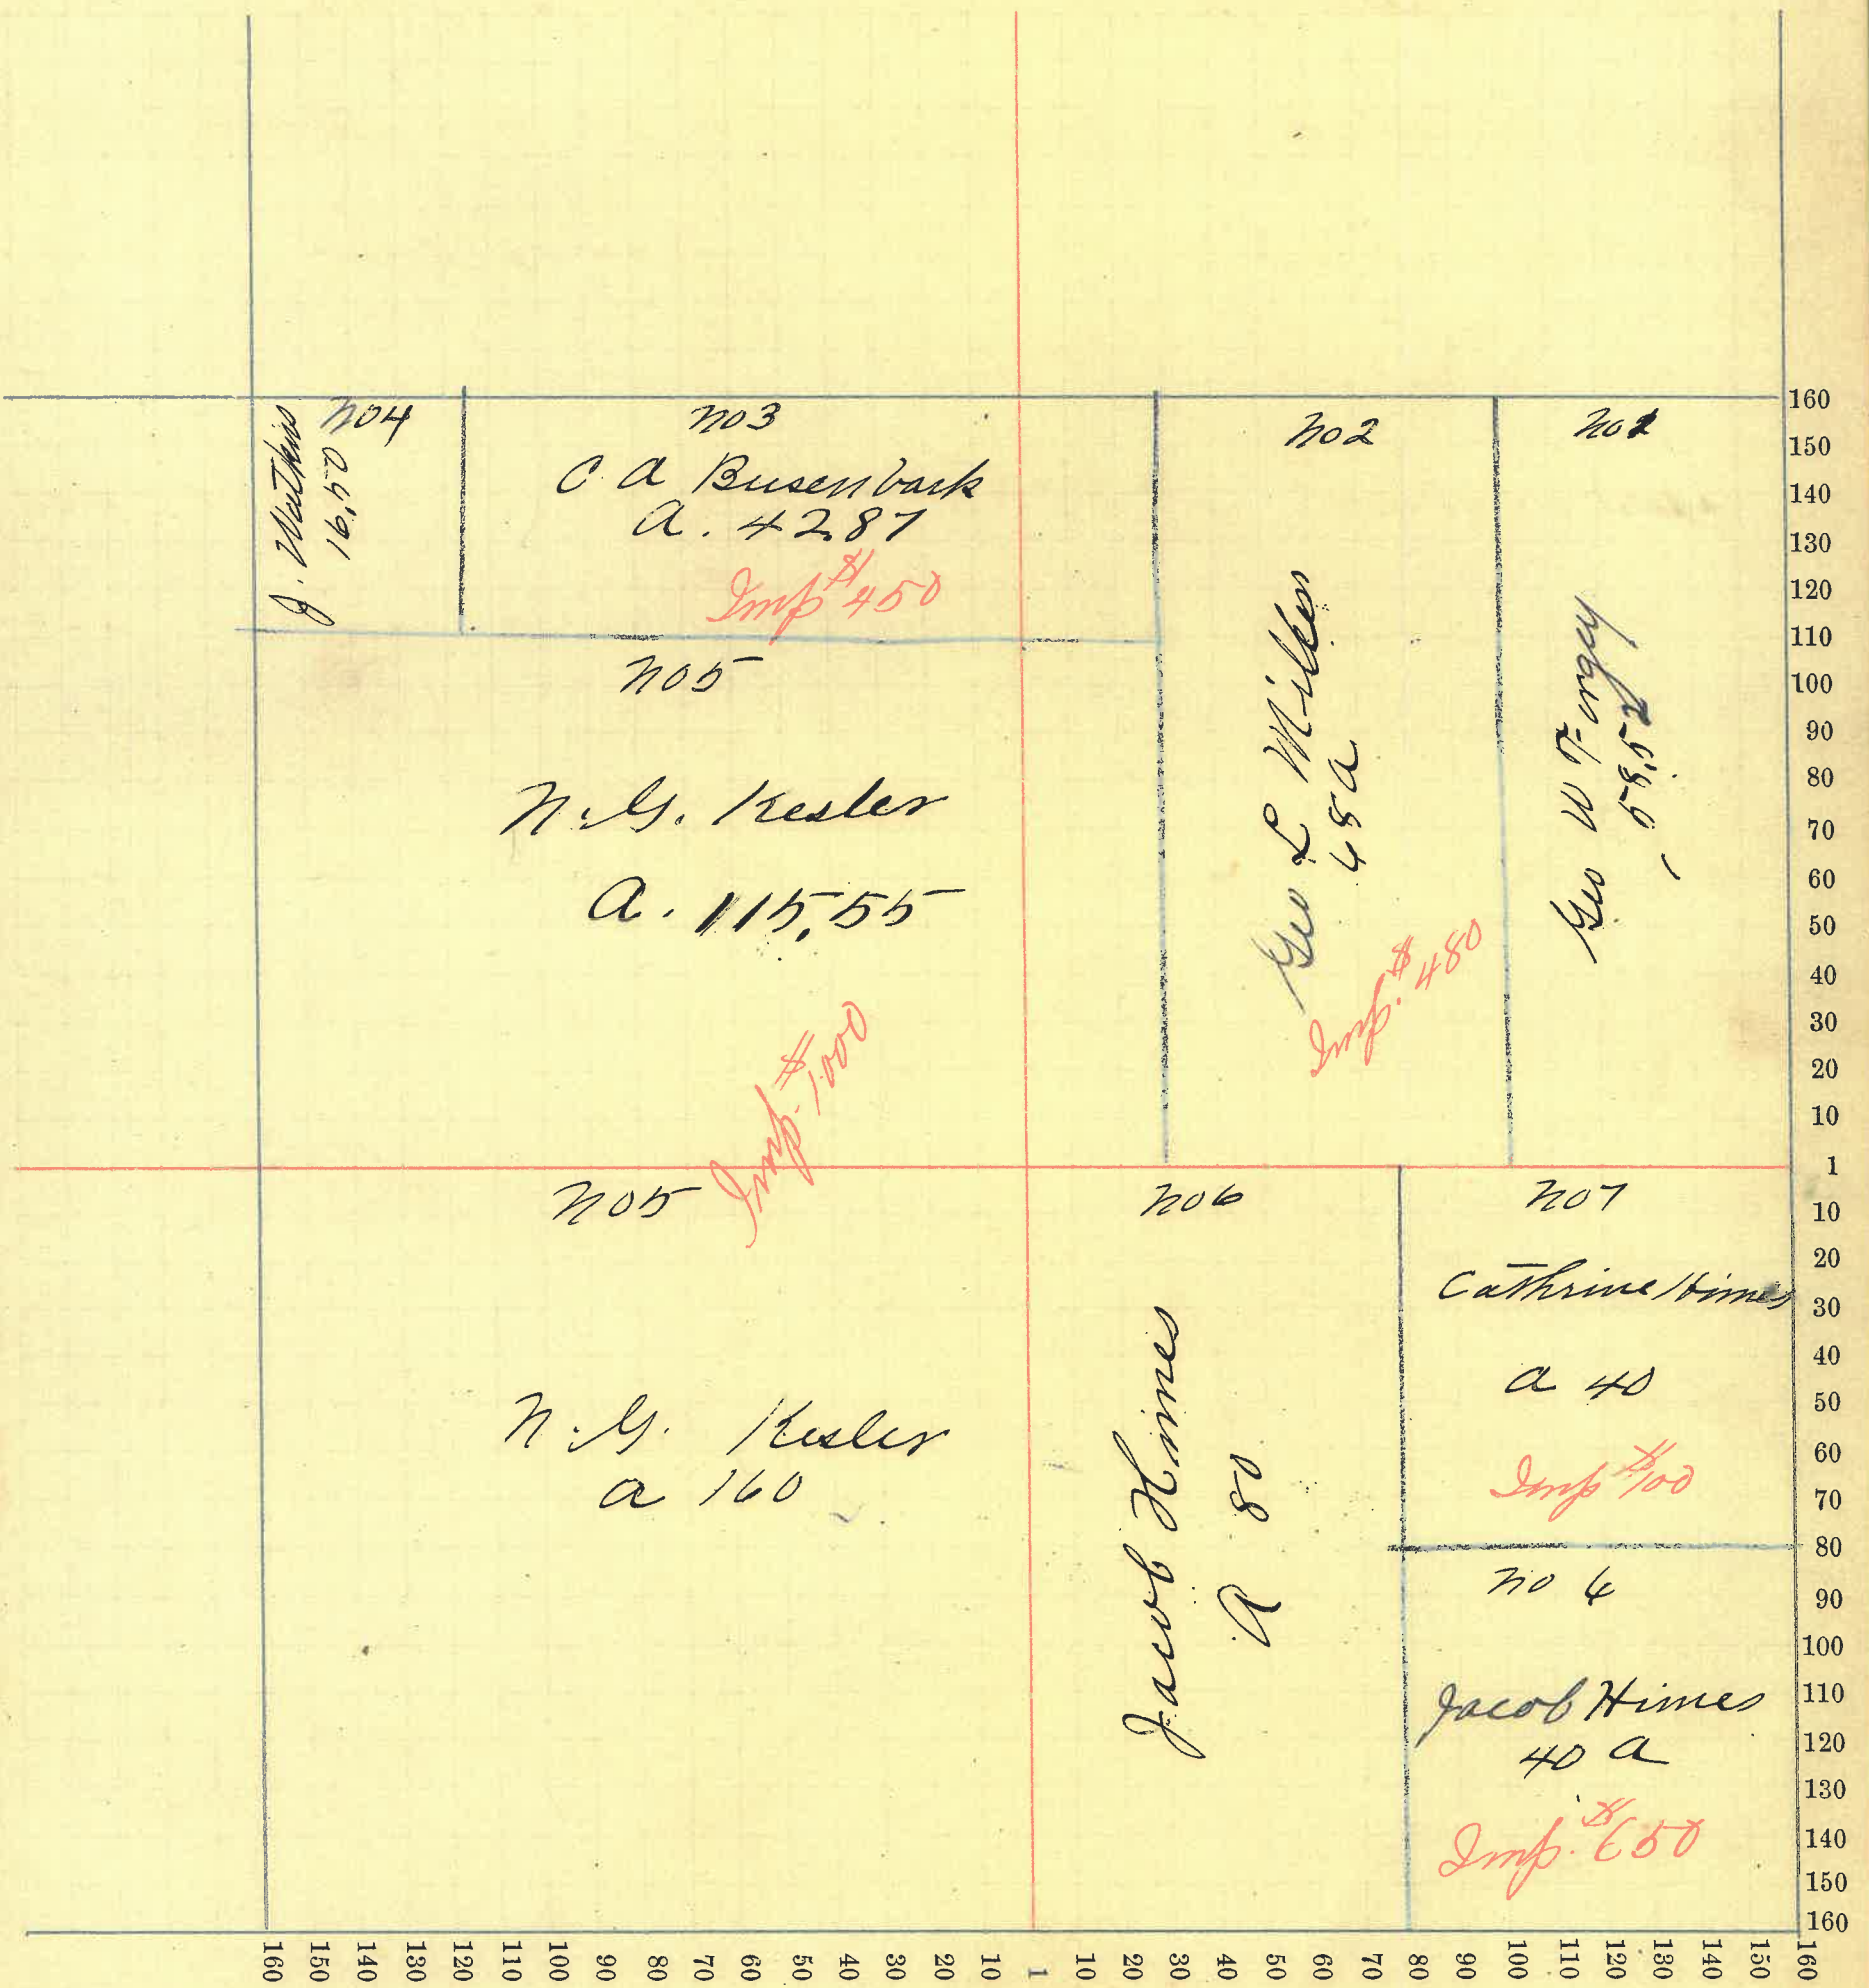 no 4
J. Watkins
16,50
no 3
C A Busenbark
A. 42.87
Imp $450
no 2
Geo L Miller
68 A
Imp. $480
no 1
Geo W
58,52
no 5
N. G. Kesler
A. 115,55
Imp. $1000
no 5
N. G. Kesler
A 160
no 6
Jacob Himes
A 80
no 7
Cathrine Himes
A 40
Imp $100
no 6
Jacob Himes
40 A
Imp. $650
160
150
140
130
120
110
100
90
80
70
60
50
40
30
20
10
1
10
20
30
40
50
60
70
80
90
100
110
120
130
140
150
160
160 150 140 130 120 110 100 90 80 70 60 50 40 30 20 10 1 10 20 30 40 50 60 70 80 90 100 110 120 130 140 150 160